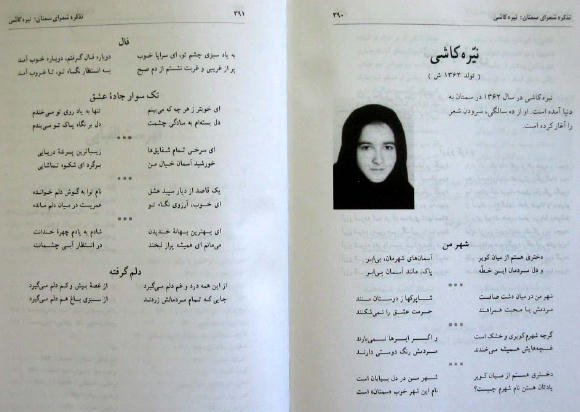 ۳۹۰ تذکره شعرای سمنان: نیّره کاشی
نیّره کاشی
( تولد ۱۳۶۲ ش )
نیره کاشی در سال ۱۳۶۲ در سمنان به
دنیا آمده است. او از ده سالگی، سرودن شعر
را آغاز کرده است.
شهر من
دختری هستم از میان کویر آسمان‌های شهرمان، بی‌ابر
و دل مردمان این خطّه پاک، مانند آسمان بی‌ابر
***
شهر من در میان دشت صافست
مردمش با محبت همراهند حرمت عشق را نمی‌شکنند
***
گرچه شهرم کویری و خشک است و اگر ابرها نمی‌بارند
غنچه‌هایش همیشه می‌خندند مردمش رنگ دوستی دارند
***
دختری هستم از میان کویر شهر من در دل بیابان است
یادتان هست نام شهرم چیست؟ نام این شهر خوب «سمنان» است
تذکره شعرای سمنان: نیّره کاشی ۳۹۱
فال
به یاد سبزی چشم تو، ای سراپا خوب دوباره فال گرفتم، دوباره خوب آمد
پر از غریبی و غربت نشستم از دم صبح به انتظار نگاه تو، تا غروب آمد
تک سوار جادهٔ عشق
ای خوبتر از هر چه که می‌بینم تنها به یاد روی تو می‌خندم
دل بسته‌ام به سادگی چشمت دل بر نگاه پاک تو می‌بندم
***
ای سرخی تمام شقایق‌ها زیباترین پرندهٔ دریایی
خورشید آسمان خیال من برگرد ای شکوه تماشایی
***
یک قاصد از دیار سپید عشق نام ترا به گوش دلم خوانده
ای خوب، آرزوی نگاه تو عمریست در میان دلم مانده
***
ای بهترین بهانهٔ خندیدن شادم به یادم چهرهٔ خندانت
می‌مانم ای همیشه پر از لبخند در انتظار آبی چشمانت
دلم گرفته
از این همه درد و غم دلم می‌گیرد از غصهٔ بیش و کم دلم می‌گیرد
جایی که تمام مردمانش زردند از سبزی باغ هم دلم می‌گیرد